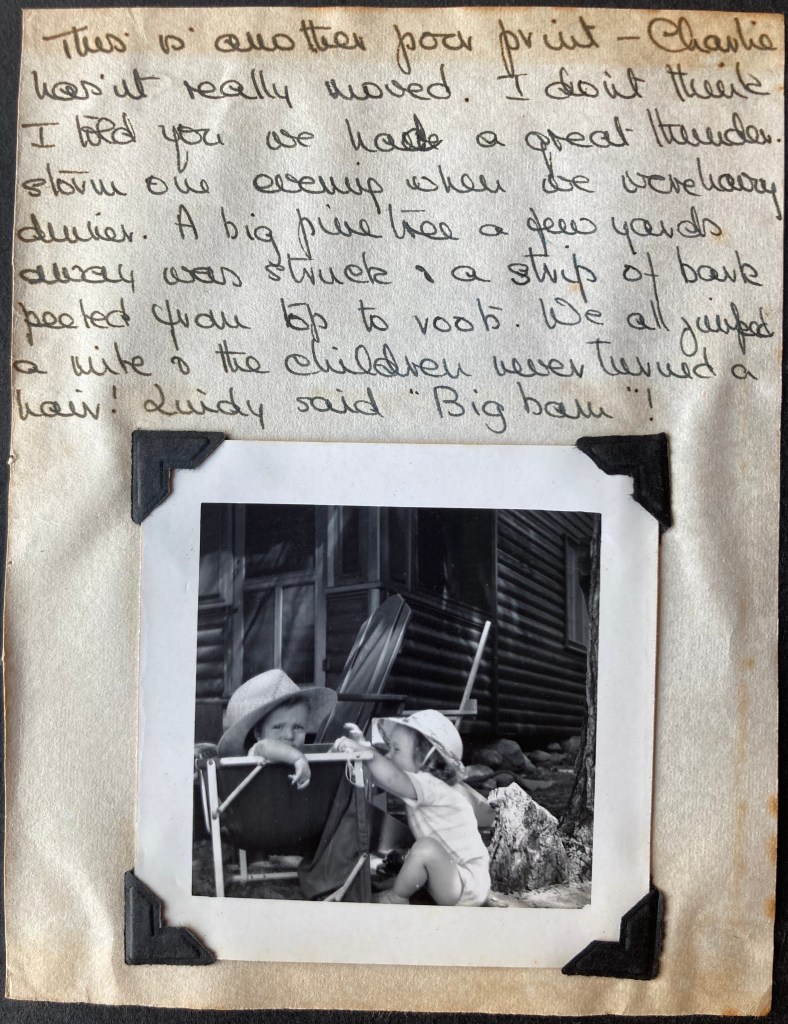 This is another poor print - Charlie
has'nt really moved. I don't think
I told you we had a great thunder-
storm one evening when we were having
dinner. A big pine tree a few yards
away was struck & a strip of bark
peeled from top to roots. We all jumped
a mite & the children never turned a
hair! Lindy said "Big bam"!